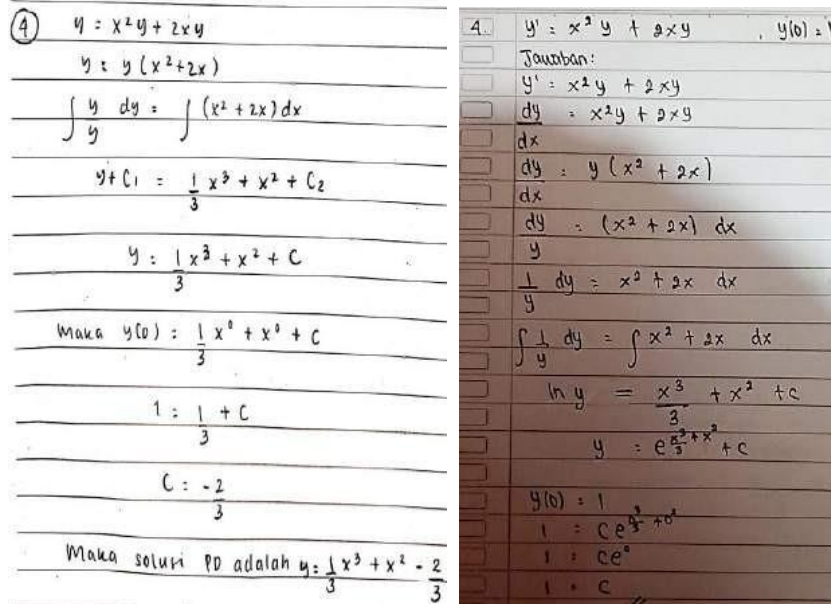 ④ y = x²y + 2xy
y = y (x² + 2x)
∫ y/y dy = ∫ (x² + 2x) dx
y + C₁ = 1/3 x³ + x² + C₂
y = 1/3 x³ + x² + C
Maka y(0) = 1/3 x⁰ + x⁰ + C
1 = 1/3 + C
C = -2/3
Maka solusi PD adalah y = 1/3 x³ + x² - 2/3
4. y' = x²y + 2xy , y(0) = 1
Jawaban :
y' = x²y + 2xy
dy/dx = x²y + 2xy
dy/dx = y (x² + 2x)
dy/y = (x² + 2x) dx
1/y dy = x² + 2x dx
∫ 1/y dy = ∫ x² + 2x dx
ln y = x³/3 + x² + c
y = e^(x³/3 + x²) + c
y(0) = 1
1 = Ce^(0³/3 + 0²)
1 = ce⁰
1 = C